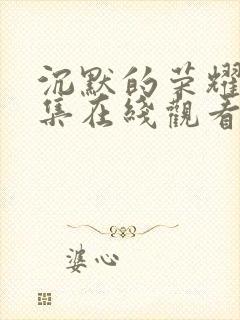 沉默的荣耀
集在綫觀看
婆心